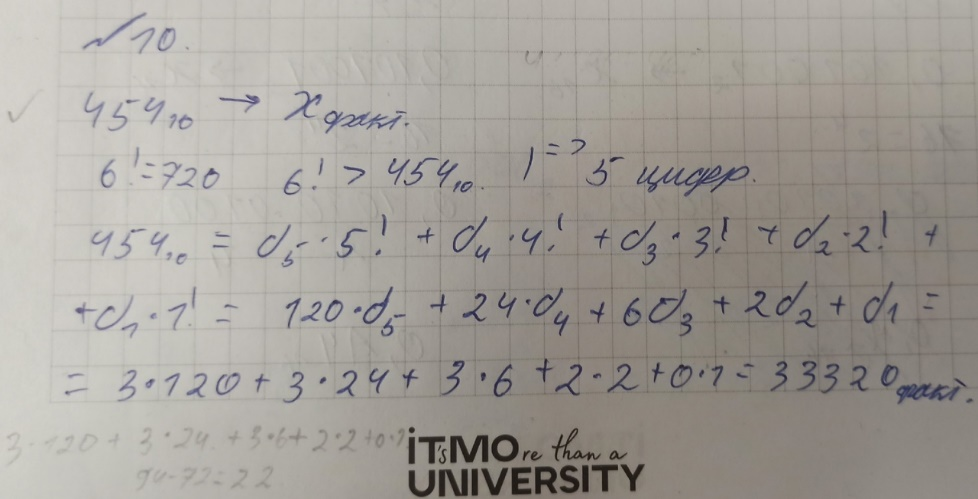 √10.
454₁₀ → X факт.
6! = 720 6! > 454₁₀. | => 5 цифр.
454₁₀ = d₅·5! + d₄·4! + d₃·3! + d₂·2! +
+d₁·1! = 120·d₅ + 24·d₄ + 6d₃ + 2d₂ + d₁ =
= 3·120 + 3·24 + 3·6 + 2·2 + 0·1 = 33320 факт.
3·120 + 3·24 + 3·6 + 2·2 + 0·1
94-72=22
iT'sMOre than a
UNIVERSITY